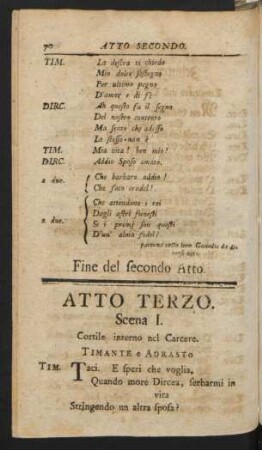 70 ATTO SECONDO.
TIM. La destra ti chiedo
Mio dolce sostegno
Per ultimo pegno
D'amor e di fè
DIRC. Ah questo fu il segno
Del nostro contento
Ma sento che adesso
Lo stesso non è
TIM. Mia vita! ben mio!
DIRC. Addio Sposo amato.
a due. Che barbaro addio!
Che fato crudel!
a due. Che attendono i rei
Dagli astri funesti
Se i premj son questi
D'un' alma fedel?
partono
Fine del secondo Atto.
ATTO TERZO.
Scena I.
Cortile interno nel Carcere.
TIMANTE e ADRASTO
TIM. Taci. E speri che voglia,
Quando more Dircea, serbarmi in
vita
Stringendo un altra sposa?